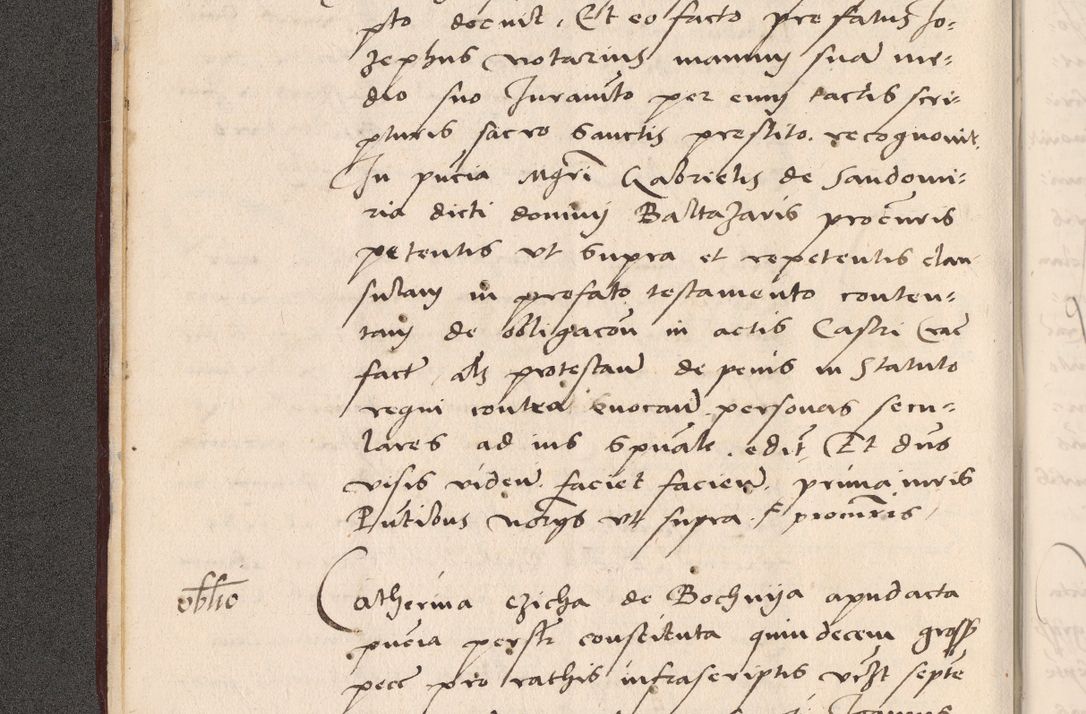 pto docuit. Et eo facto prefatus Jo:
zephus notarius manum suam me:
dio suo Juramto per eum tactis scri:
pturis sacro sanctis prestito recognouit.
In pñcia Mgri Gabrielis de Sandomi:
ria dicti domini Baltazaris procuris
petentis vt supra et repetentis clau
sulam in prefato testamento conten:
tam de obligacon in actis Castri Crac
fact als protestan de penis in Statuto
regni contra euocan personas secu:
lares ad ius spuale edit, Et dns
visis viden faciet facien. prima iuris
Pntibus notrys vt supra et procuris
oblio
Catherina czicha de Bochnija apud acta
pñcia perstr constituta quindecem gross
pecc pro rathis infrascriptis vrzt septe